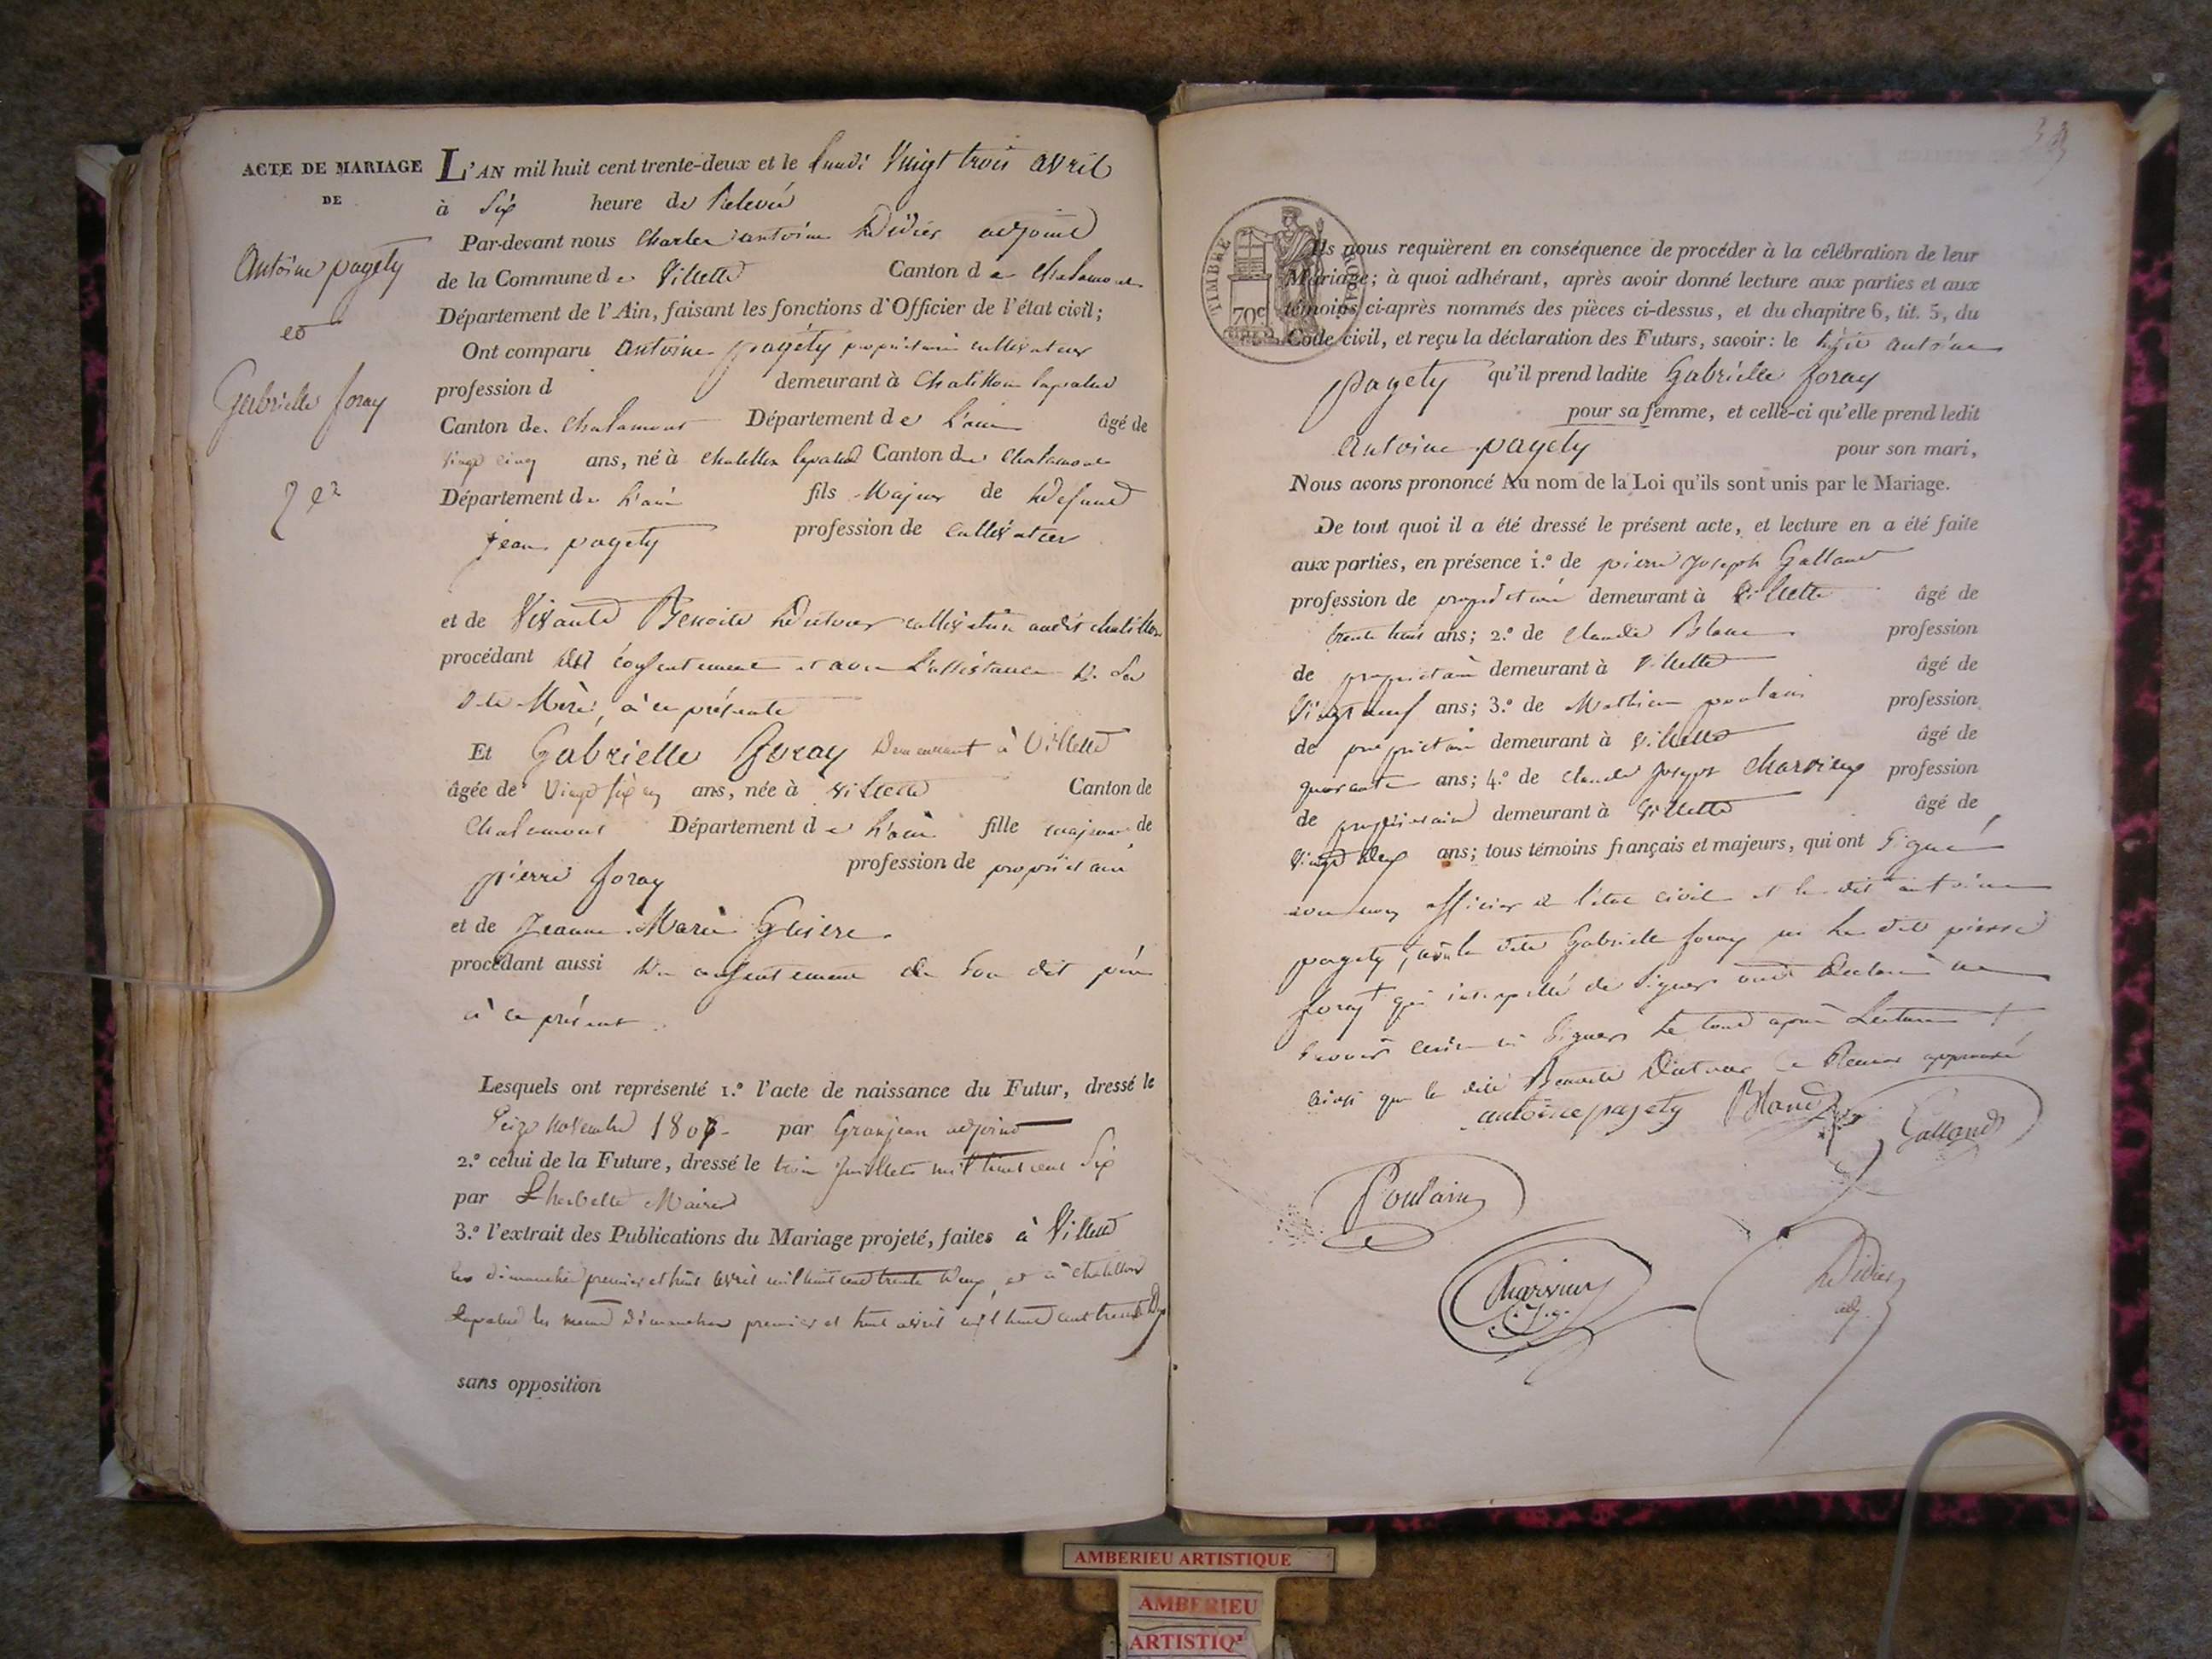 ACTE DE MARIAGE
DE
Antoine pagety
et
Gabrielle foray
7 e.
L'AN mil huit cent trente-deux et le lundi Vingt trois avril
à Six heure de Relevée
Par-devant nous Charles antoine Didier adjoint
de la Commune de Villette Canton de Chalamont
Département de l'Ain, faisant les fonctions d'Officier de l'état civil;
Ont comparu Antoine pagety propriétaire cultivateur
profession d demeurant à Chatillon lapalud
Canton de Chalamont Département de L'ain âgé de
Vingt cinq ans, né à chatillon lapalud Canton de Chalamont
Département de L'ain fils Majeur de Defunt
jean pagety profession de cultivateur
et de Vivante Benoite Dutour cultivatrice audit chatillon
procédant du consentement et avec L'assistance de Sa
dite Mère, à ce présente
Et Gabrielle foray Demeurant à Villette
âgée de Vingt six ans, née à Villette Canton de
Chalamont Département de L'ain fille majeure de
pierre foray profession de propriétaire
et de Jeanne Marie
procédant aussi du consentement de Son dit père
à ce présent
Lesquels ont représenté 1.º l'acte de naissance du Futur, dressé le
Seize Novembre 180 par Granjean adjoint
2.º celui de la Future, dressé le trois Juillet mil huit cent Six
par Lherbette Maire
3.º l'extrait des Publications du Mariage projeté, faites à Villette
les dimanches premier et huit avril mil huit cent trente deux, et à chatillon
Lapalud les meme dimanches premier et huit avril mil huit cent trente deux
sans opposition
TIMBRE ROYAL
70c
Ils nous requièrent en conséquence de procéder à la célébration de leur
Mariage; à quoi adhérant, après avoir donné lecture aux parties et aux
témoins ci-après nommés des pièces ci-dessus, et du chapitre 6, tit. 5, du
Code civil, et reçu la déclaration des Futurs, savoir: le antoine
pagety qu'il prend ladite Gabrielle foray
pour sa femme, et celle-ci qu'elle prend ledit
Antoine pagety pour son mari,
Nous avons prononcé Au nom de la Loi qu'ils sont unis par le Mariage.
De tout quoi il a été dressé le présent acte, et lecture en a été faite
aux parties, en présence 1.º de pierre joseph Galland
profession de propriétaire demeurant à Villette âgé de
trente huit ans; 2.º de claude Blanc profession
de propriétaire demeurant à Villette âgé de
Vingt neuf ans; 3.º de Mathieu poulain profession
de propriétaire demeurant à Villette âgé de
quarante ans; 4.º de claude joseph Charvieux profession
de propriétaire demeurant à Villette âgé de
Vingt deux ans; tous témoins français et majeurs, qui ont Signé
avec nous officier de l'état civil et le dit antoine
pagety, la dite Gabrielle foray ni le dit pierre
foray + qui interpellé de Signer ont Déclaré ne
Savoir Signer Le tout après Lecture +
ainsi que la dite Benoite Dutour approuvé
antoine pagety Blanc Galland
Poulain
Charvieux Didier
adj.
AMBERIEU ARTISTIQUE
AMBERIEU
ARTISTIQ